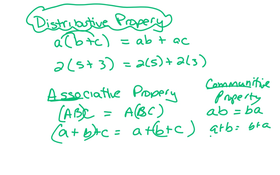 Distributive Property
a(b+c) = ab + ac
2(5+3) = 2(5)+2(3)
Associative Property
(AB)C = A(BC)
(a+b)+c = a+(b+c)
Commutative
Property
ab = ba
a+b = b+a